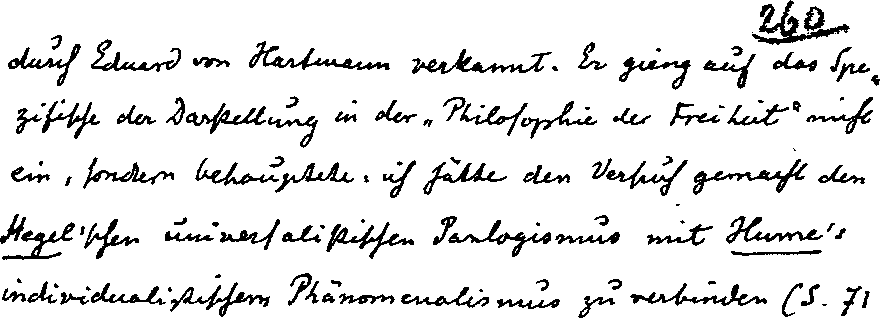 260
durch Eduard von Hartmann verkannt. Er gieng auf das Spe„
zifische der Darstellung in der „Philosophie der Freiheit“ nicht
ein, sondern behauptete: ich hätte den Versuch gemacht den
Hegel'schen universalistischen Panlogismus mit Hume's
individualistischem Phänomenalismus zu verbinden (S. 71